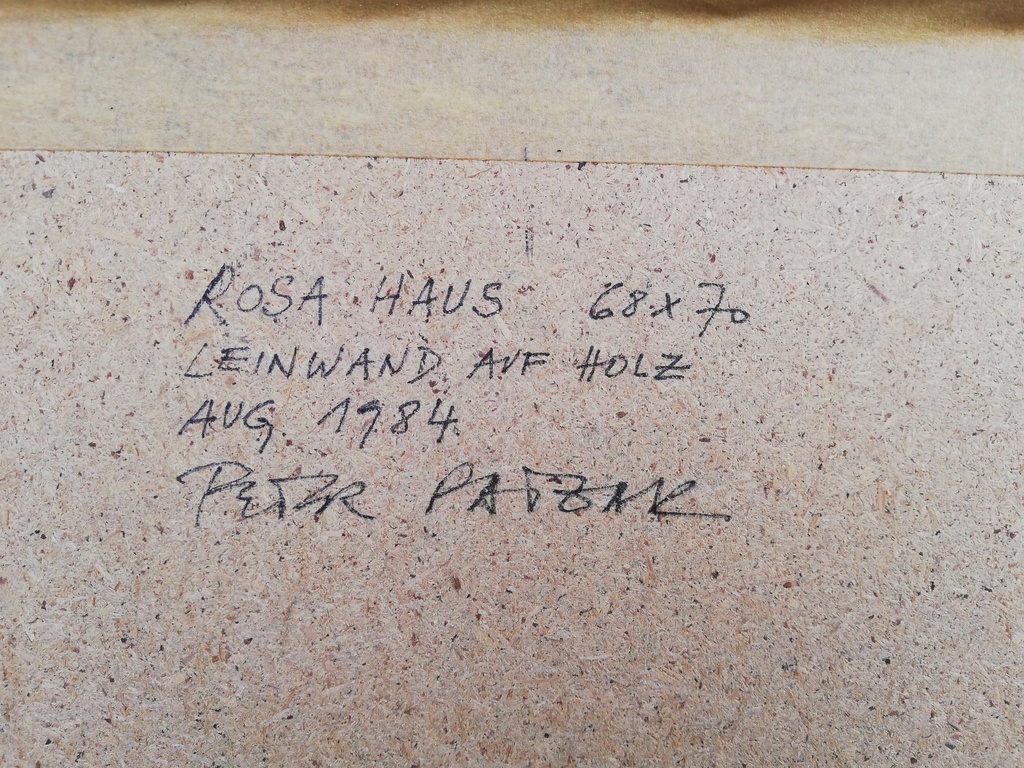 ROSA HAUS 68x70
LEINWAND AUF HOLZ
AUG. 1984.
PETER PATZAK